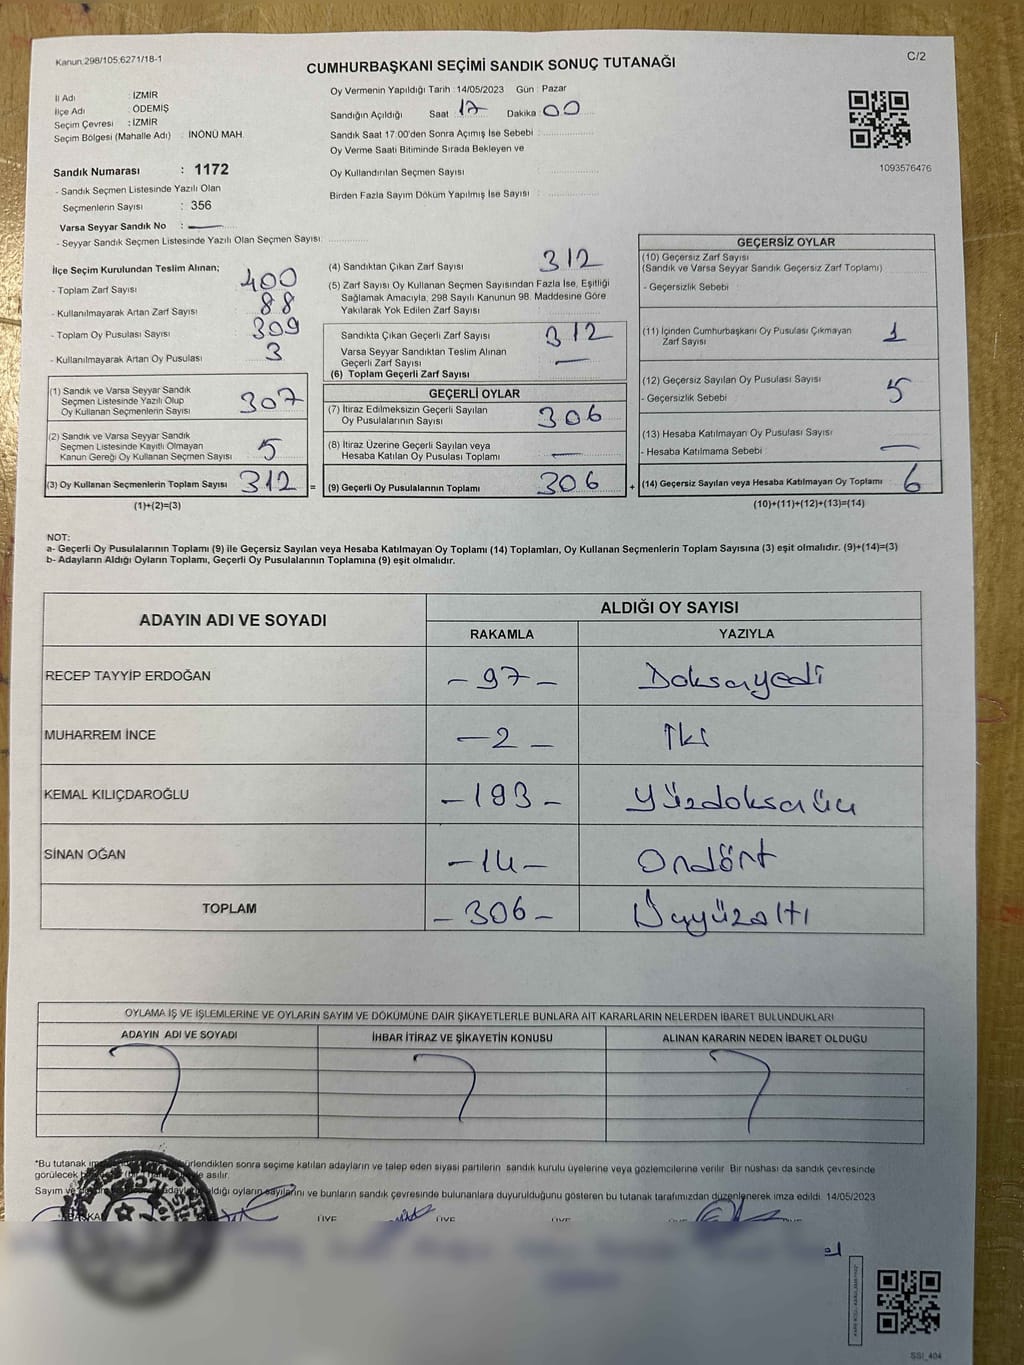 Kanun.298/105.6271/18-1
C/2
CUMHURBAŞKANI SEÇİMİ SANDIK SONUÇ TUTANAĞI
İl Adı : İZMİR
İlçe Adı : ÖDEMİŞ
Seçim Çevresi : İZMİR
Seçim Bölgesi (Mahalle Adı) : İNÖNÜ MAH.
Sandık Numarası : 1172
- Sandık Seçmen Listesinde Yazılı Olan
Seçmenlerin Sayısı : 356
Varsa Seyyar Sandık No : —
- Seyyar Sandık Seçmen Listesinde Yazılı Olan Seçmen Sayısı:
Oy Vermenin Yapıldığı Tarih : 14/05/2023 Gün : Pazar
Sandığın Açıldığı Saat 17 Dakika 00
Sandık Saat 17.00'den Sonra Açılmış İse Sebebi :
Oy Verme Saati Bitiminde Sırada Bekleyen ve
Oy Kullandırılan Seçmen Sayısı :
Birden Fazla Sayım Döküm Yapılmış İse Sayısı :
1093576476
İlçe Seçim Kurulundan Teslim Alınan;
- Toplam Zarf Sayısı 400
- Kullanılmayarak Artan Zarf Sayısı : 88
- Toplam Oy Pusulası Sayısı 309
- Kullanılmayarak Artan Oy Pusulası : 3
(1) Sandık ve Varsa Seyyar Sandık
Seçmen Listesinde Yazılı Olup
Oy Kullanan Seçmenlerin Sayısı : 307
(2) Sandık ve Varsa Seyyar Sandık
Seçmen Listesinde Kayıtlı Olmayan
Kanun Gereği Oy Kullanan Seçmen Sayısı : 5
(3) Oy Kullanan Seçmenlerin Toplam Sayısı : 312 =
(1)+(2)=(3)
(4) Sandıktan Çıkan Zarf Sayısı : 312
(5) Zarf Sayısı Oy Kullanan Seçmen Sayısından Fazla İse, Eşitliği
Sağlamak Amacıyla, 298 Sayılı Kanunun 98. Maddesine Göre
Yakılarak Yok Edilen Zarf Sayısı :
Sandıkta Çıkan Geçerli Zarf Sayısı : 312
Varsa Seyyar Sandıktan Teslim Alınan
Geçerli Zarf Sayısı : —
(6) Toplam Geçerli Zarf Sayısı
GEÇERLİ OYLAR
(7) İtiraz Edilmeksizin Geçerli Sayılan
Oy Pusulalarının Sayısı : 306
(8) İtiraz Üzerine Geçerli Sayılan veya
Hesaba Katılan Oy Pusulası Toplamı : —
(9) Geçerli Oy Pusulalarının Toplamı : 306 +
GEÇERSİZ OYLAR
(10) Geçersiz Zarf Sayısı
(Sandık ve Varsa Seyyar Sandık Geçersiz Zarf Toplamı)
- Geçersizlik Sebebi :
(11) İçinden Cumhurbaşkanı Oy Pusulası Çıkmayan
Zarf Sayısı : 1
(12) Geçersiz Sayılan Oy Pusulası Sayısı : 5
- Geçersizlik Sebebi :
(13) Hesaba Katılmayan Oy Pusulası Sayısı : —
- Hesaba Katılmama Sebebi :
(14) Geçersiz Sayılan veya Hesaba Katılmayan Oy Toplamı : 6
(10)+(11)+(12)+(13)=(14)
NOT:
a- Geçerli Oy Pusulalarının Toplamı (9) ile Geçersiz Sayılan veya Hesaba Katılmayan Oy Toplamı (14) Toplamları, Oy Kullanan Seçmenlerin Toplam Sayısına (3) eşit olmalıdır. (9)+(14)=(3)
b- Adayların Aldığı Oyların Toplamı, Geçerli Oy Pusulalarının Toplamına (9) eşit olmalıdır.
ADAYIN ADI VE SOYADI
ALDIĞI OY SAYISI
RAKAMLA YAZIYLA
RECEP TAYYİP ERDOĞAN – 97 – Doksanyedi
MUHARREM İNCE – 2 – İki
KEMAL KILIÇDAROĞLU – 193 – Yüzdoksanüç
SİNAN OĞAN – 14 – Ondört
TOPLAM – 306 – Üçyüzaltı
OYLAMA İŞ VE İŞLEMLERİNE VE OYLARIN SAYIM VE DÖKÜMÜNE DAİR ŞİKAYETLERLE BUNLARA AİT KARARLARIN NELERDEN İBARET BULUNDUKLARI
ADAYIN ADI VE SOYADI İHBAR İTİRAZ VE ŞİKAYETİN KONUSU ALINAN KARARIN NEDEN İBARET OLDUĞU
*Bu tutanak sonra seçime katılan adayların ve talep eden siyasi partilerin sandık kurulu üyelerine veya gözlemcilerine verilir. Bir nüshası da sandık çevresinde
görülecek asılır.
Sayım ve aldığı oyların sayılarını ve bunların sandık çevresinde bulunanlara duyurulduğunu gösteren bu tutanak tarafımızdan düzenlenerek imza edildi. 14/05/2023
BAŞKAN ÜYE ÜYE ÜYE ÜYE
SSI_404